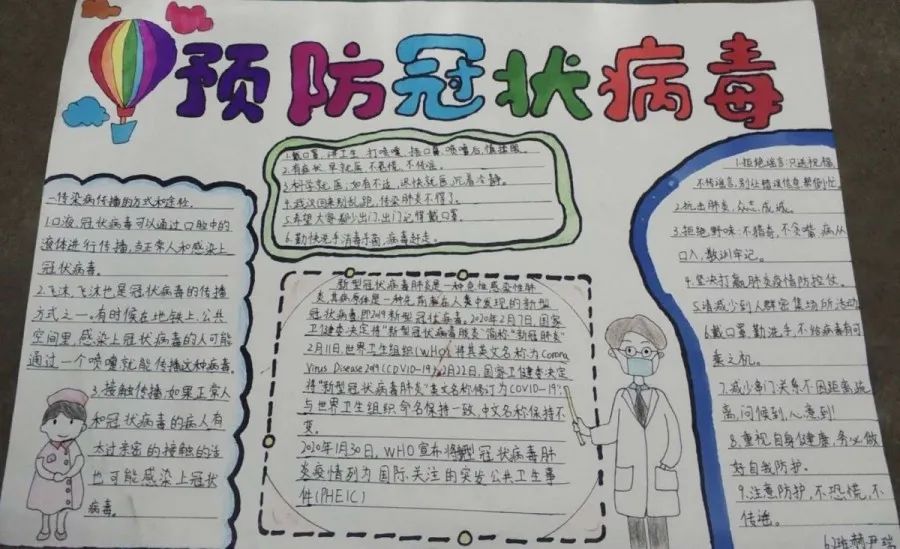 预防冠状病毒
1.戴口罩,讲卫生,打喷嚏,捂口鼻,喷嚏后,慎揉眼。
2.有症状,早就医,不恐慌,不传谣。
3.科学就医,如有不适,尽快就医,沉着冷静。
4.武汉回来别乱跑,传染肺炎不得了。
5.希望大家都少出门,出门记得戴口罩。
6.勤快洗手消毒手菌,病毒赶走。
一.传染病传播的方式和途径。
1.口液,冠状病毒可以通过口腔中的
液体进行传播,当正常人和感染上
冠状病毒。
2.飞沫,飞沫也是冠状病毒的传播
方式之一。有时候在地铁上,公共
空间里,感染上冠状病毒的人可能
通过一个喷嚏就能传播这种病毒。
3.接触传播,如果正常人
和冠状病毒的病人有
太过亲密的接触的话
也可能感染上冠状
病毒。
新型冠状病毒肺炎是一种急性感染性肺
炎,其病原体是一种先前未在人类中发现的新型
冠状病毒,即2019新型冠状病毒。2020年2月7日,国家
卫健委决定将"新型冠状病毒肺炎"简称"新冠肺炎"
2月11日,世界卫生组织(WHO)将其英文名称为Corona
Virus Disease 2019(COVID-19),2月22日,国家卫健委决定
将"新型冠状病毒肺炎"英文名称修订为COVID-19",
与世界卫生组织命名保持一致,中文名称保持不
变。
2020年1月30日,WHO宣布将新型冠状病毒肺
炎疫情列为国际关注的突发公共卫生事
件(PHEIC)
1.拒绝谣言:只送祝福,
不传谣言,别让错误信息帮倒忙
2.抗击肺炎,众志成城。
3.拒绝野味:不猎奇,不贪嘴,病从
口入,教训牢记。
4.坚决打赢肺炎疫情防控仗。
5.请减少到人群密集场所活动
6.戴口罩勤洗手,不给病毒有可
乘之机。
7.减少串门:关系不因距离疏
离,问候到,心意到!
8.重视自身健康,务必做
好自我防护。
9.注意防护,不恐慌,不
传谣。